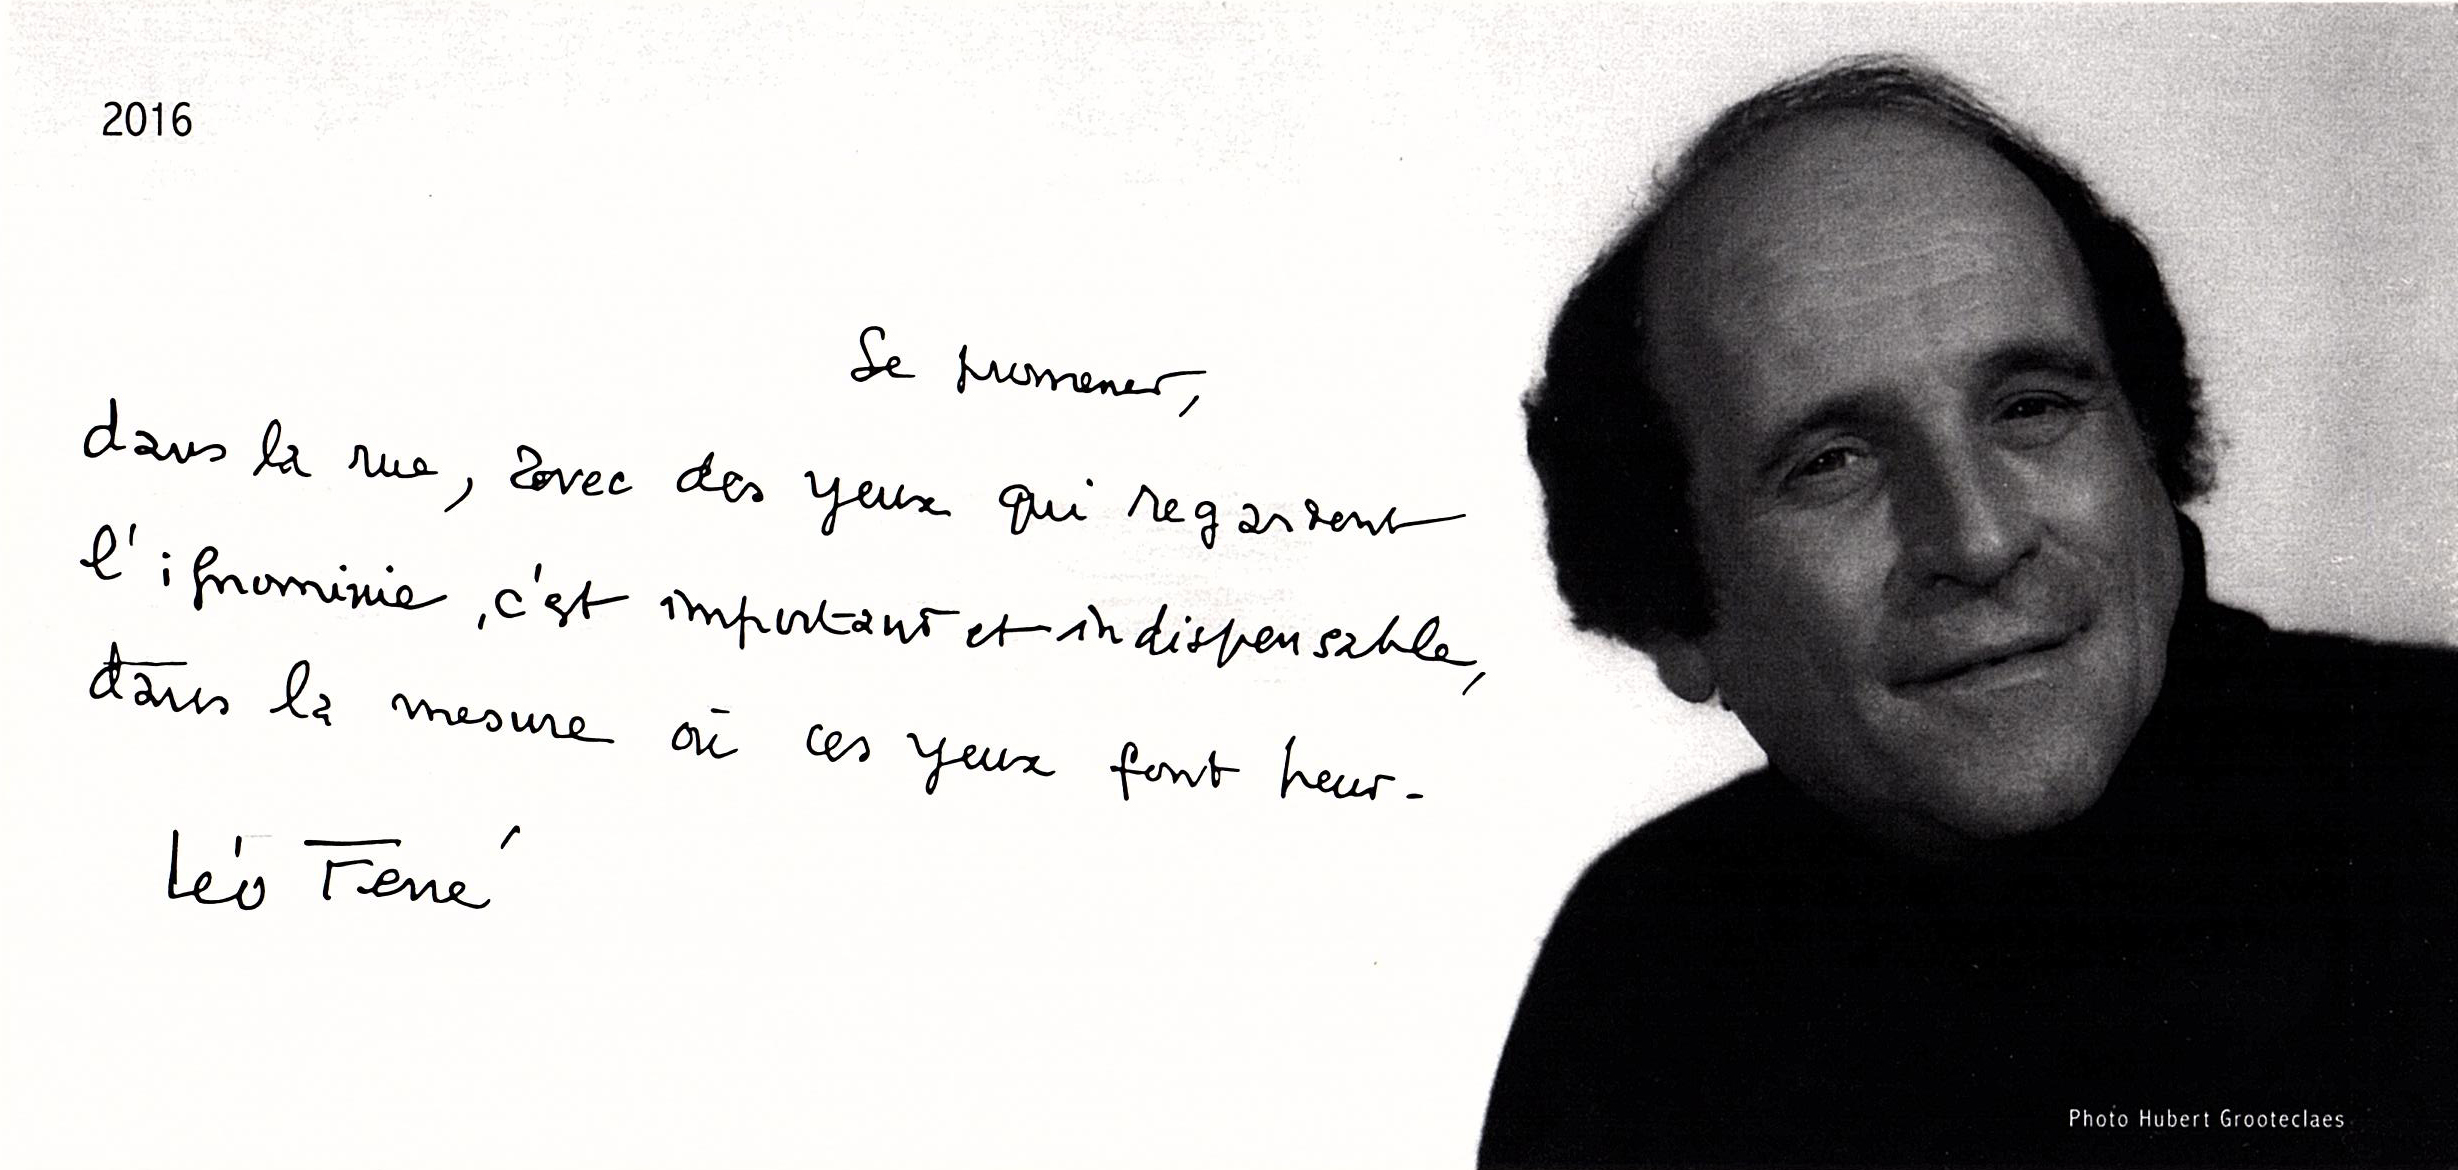 2016
Se promener,
dans la rue, avec des yeux qui regardent
l'ignominie, c'est important et indispensable,
dans la mesure où ces yeux font peur.
Léo Ferré
Photo Hubert Grooteclaes